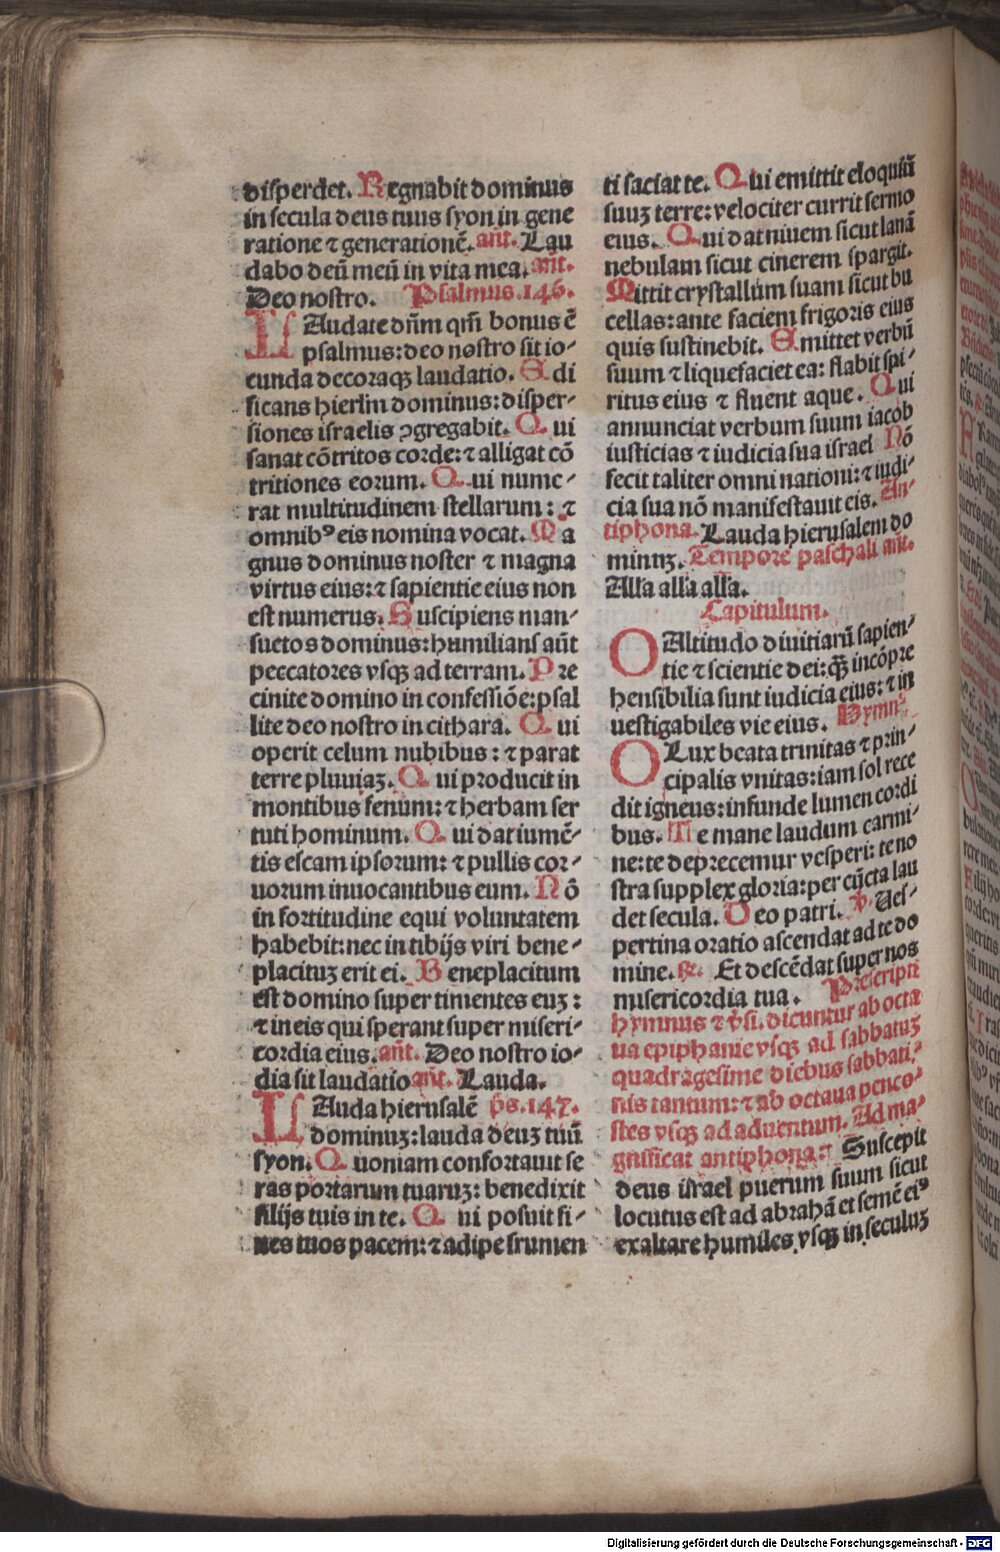 disperdet. Regnabit dominus
in secula deus tuus syon in gene
ratione ⁊ generationē. añt. Lau
dabo deū meū in vita mea. añt.
Deo nostro. Psalmus .146.
LAudate dn̄m qm̄ bonus ē
psalmus: deo nostro sit io⸗
cunda decoraqꝫ laudatio. Edi
ficans hierl̄m dominus: disper⸗
siones israelis ꝯgregabit. Qui
sanat cōtritos corde: ⁊ alligat cō
tritiones eorum. Qui nume⸗
rat multitudinem stellarum: ⁊
omnibꝰ eis nomina vocat. Ma
gnus dominus noster ⁊ magna
virtus eius: ⁊ sapientie eius non
est numerus. Suscipiens man⸗
suetos dominus: humilians aūt
peccatores vsqꝫ ad terram. Pre
cinite domino in confessiōe: psal
lite deo nostro in cithara. Qui
operit celum nubibus: ⁊ parat
terre pluuiaꝫ. Qui producit in
montibus fenum: ⁊ herbam ser
tuti hominum. Qui dat iumē⸗
tis escam ipsorum: ⁊ pullis cor⸗
uorum inuocantibus eum. Nō
in fortitudine equi voluntatem
habebit: nec in tibijs viri bene⸗
placituꝫ erit ei. Beneplacitum
est domino super timentes euꝫ:
⁊ in eis qui sperant super miseri⸗
cordia eius. añt. Deo nostro io⸗
dia sit laudatio añt. Lauda.
LAuda hierusalē ps. 147.
dominuꝫ: lauda deuꝫ tuū
syon. Quoniam confortauit se
ras portarum tuaruꝫ: benedixit
filijs tuis in te. Qui posuit fi⸗
nes tuos pacem: ⁊ adipe frumen
ti saciat te. Qui emittit eloquiū
suuꝫ terre: velociter currit sermo
eius. Qui dat niuem sicut lanā
nebulam sicut cinerem spargit.
Mittit crystallum suam sicut bu
cellas: ante faciem frigoris eius
quis sustinebit. Emittet verbū
suum ⁊ liquefaciet ea: flabit spi⸗
ritus eius ⁊ fluent aque. Qui
annunciat verbum suum iacob
iusticias ⁊ iudicia sua israel Nō
fecit taliter omni nationi: ⁊ iudi⸗
cia sua nō manifestauit eis. An⸗
tiphona. Lauda hierusalem do
minuꝫ. Tempore paschali añt.
Alľa alľa alľa.
Capitulum.
OAltitudo diuitiarū sapien⸗
tie ⁊ scientie dei: q̄ꝫ incōpre
hensibilia sunt iudicia eius: ⁊ in
uestigabiles vie eius. Hymnꝰ
OLux beata trinitas ⁊ prin⸗
cipalis vnitas: iam sol rece
dit igneus: infunde lumen cordi
bus. Te mane laudum carmi⸗
ne: te deprecemur vesperi: te no
stra supplex gloria: per cūcta lau
det secula. Deo patri. ℣. Ues⸗
pertina oratio ascendat ad te do
mine. ℟. Et descēdat super nos
misericordia tua. Prescripti
hymnus ⁊ v̄si. dicuntur ab octa
ua epiphanie vsqꝫ ad sabbatuꝫ
quadragesime diebus sabbati⸗
nis tantum: ⁊ ab octaua penco⸗
stes vsqꝫ ad aduentum. Ad ma⸗
gnificat antiphona: Suscepit
deus israel puerum suum sicut
locutus est ad abrahā et semē eiꝰ
exaltare humiles vsqꝫ in seculuꝫ
Digitalisierung gefördert durch die Deutsche Forschungsgemeinschaft - DFG